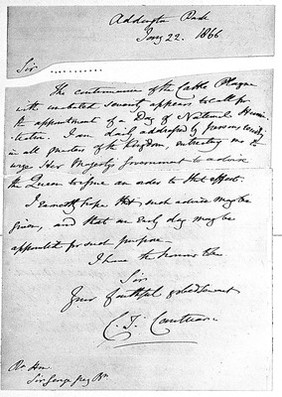 Addington Park
Jany 22. 1866
Sir
The continuance of the Cattle Plague
with unabated severity appears to call for
the appointment of a Day of National Humi-
liation. I am daily addressed by persons
in all quarters of the Kingdom, entreating me to
urge Her Majesty's Government to advise
the Queen to issue an order to that effect.
I earnestly hope that such advice may be
given, and that an early day may be
appointed for such purpose.
I have the honour to be
Sir
Your faithful &obedt Servant
C. T. Cantuar:
Rt Hon.
Sir George Grey Bt